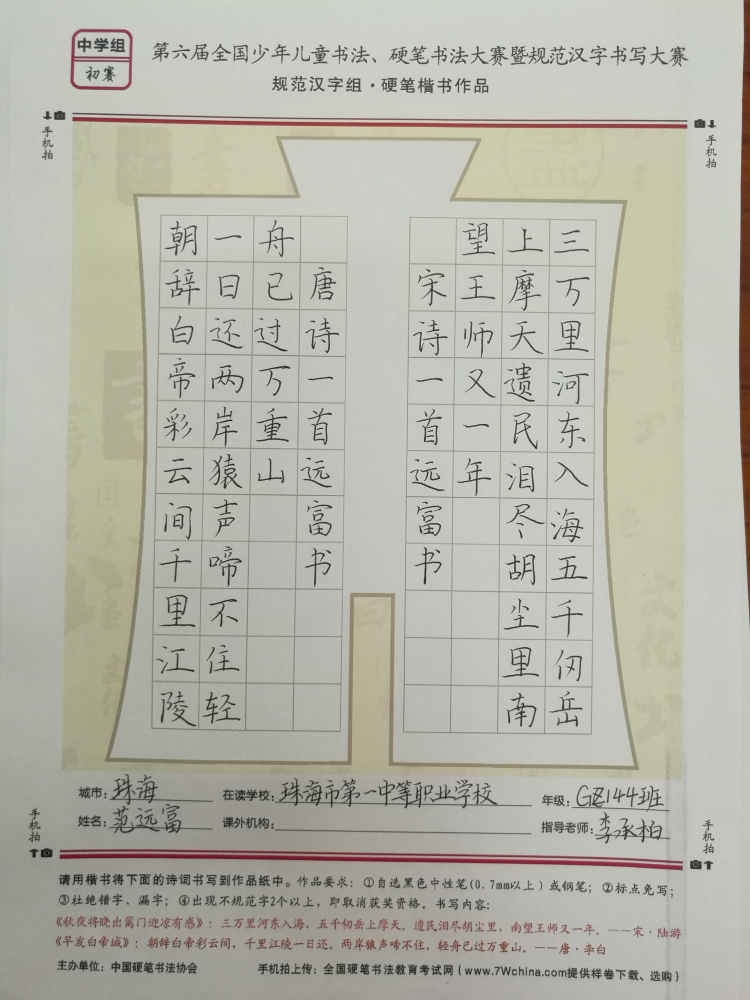 中学组
初赛
第六届全国少年儿童书法、硬笔书法大赛暨规范汉字书写大赛
规范汉字组·硬笔楷书作品
手机拍
手机拍
三万里河东入海五千仞岳
上摩天遗民泪尽胡尘里南
望王师又一年
宋诗一首远富书
朝辞白帝彩云间千里江陵
一日还两岸猿声啼不住轻
舟已过万重山
唐诗一首远富书
城市：珠海 在读学校：珠海市第一中等职业学校 年级：GZ144班
姓名：范远富 课外机构： 指导老师：李承柏
手机拍
手机拍
请用楷书将下面的诗词书写到作品纸中。作品要求：①自选黑色中性笔(0.7mm以上)或钢笔；②标点免写；
③杜绝错字、漏字；④出现不规范字2个以上，即取消获奖资格。书写内容：
《秋夜将晓出篱门迎凉有感》：三万里河东入海，五千仞岳上摩天。遗民泪尽胡尘里，南望王师又一年。——宋·陆游
《早发白帝城》：朝辞白帝彩云间，千里江陵一日还。两岸猿声啼不住，轻舟已过万重山。——唐·李白
主办单位：中国硬笔书法协会 手机拍上传：全国硬笔书法教育考试网(www.7Wchina.com提供样卷下载、选购)